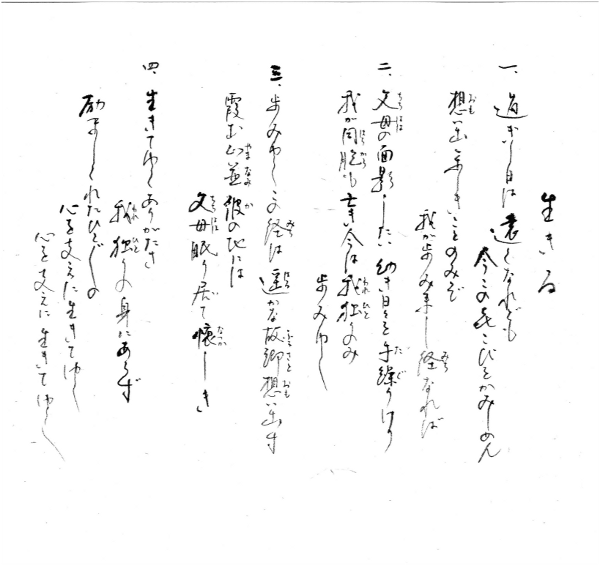 生きる
一、過ぎし日は遠くなれども
今この喜こびをかみしめん
想い出楽しきことのみぞ
我が歩み来し径なれば
二、父母の面影したい幼き日々を手繰りけり
我が同胞も亡き今は我独りのみ
歩みゆく
三、歩みゆくこの径は遥かな故郷想い出す
霞む山並彼の地には
父母眠り居て懐しき
四、生きてゆくありがたさ
我独りの身にあらず
励ましくれたひとびとの
心を支えに生きてゆく
心を支えに生きてゆく